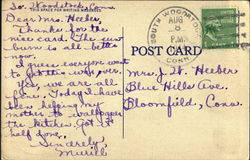 So. Woodstock, Conn.
THIS SPACE FOR WRITING
Dear Mrs. Heeber,
Thanks for the
nice card. The sun
burn is all better
now.
I guess everyone went
to get this way over.
Yes, we are all
fine. Today I have
been helping my
mother to wallpaper
the kitchen. Got it
half done.
Sincerely,
Merrill
SOUTH WOODSTOCK
AUG
8
P.M.
CONN.
POST CARD
Mrs. J. W. Heeber
Blue Hills Ave.
Bloomfield, Conn.